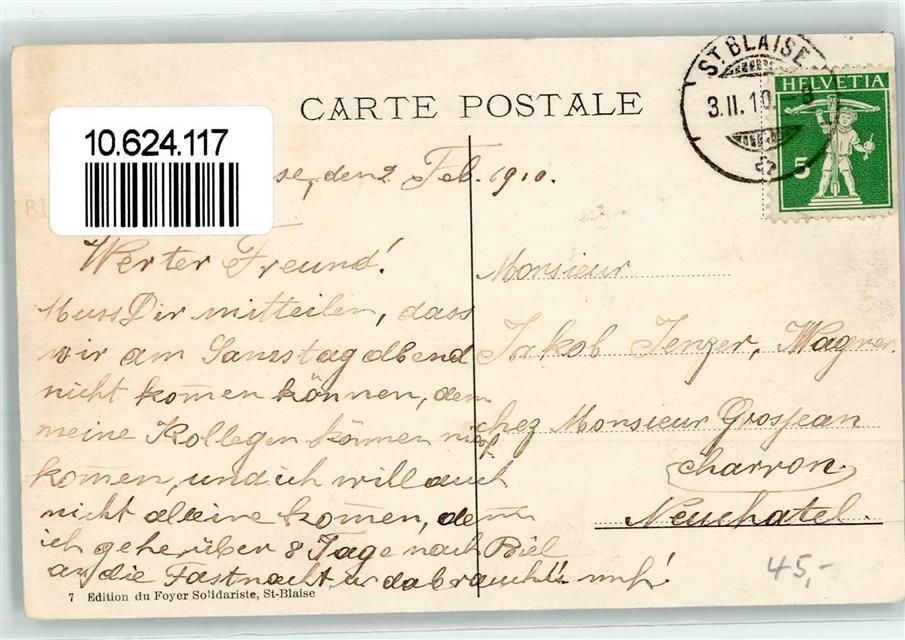 CARTE POSTALE
ST. BLAISE
3.II.10.-8
HELVETIA
5
10.624.117
se, den 2. Feb. 1910.
Werter Freund!
Muss Dir mitteilen, dass
wir am Samstag abend
nicht kom̄en können, den
meine Kollegen können nicht
kom̄en, und ich will auch
nicht alleine kom̄en, denn
ich gehe über 8 Tage nach Biel
an die Fastnacht u da brauchts
Monsieur
Jakob Jenzer, Wagner.
chez Monsieur Grosjean
charron.
Neuchatel.
45,-
7 Edition du Foyer Solidariste, St-Blaise